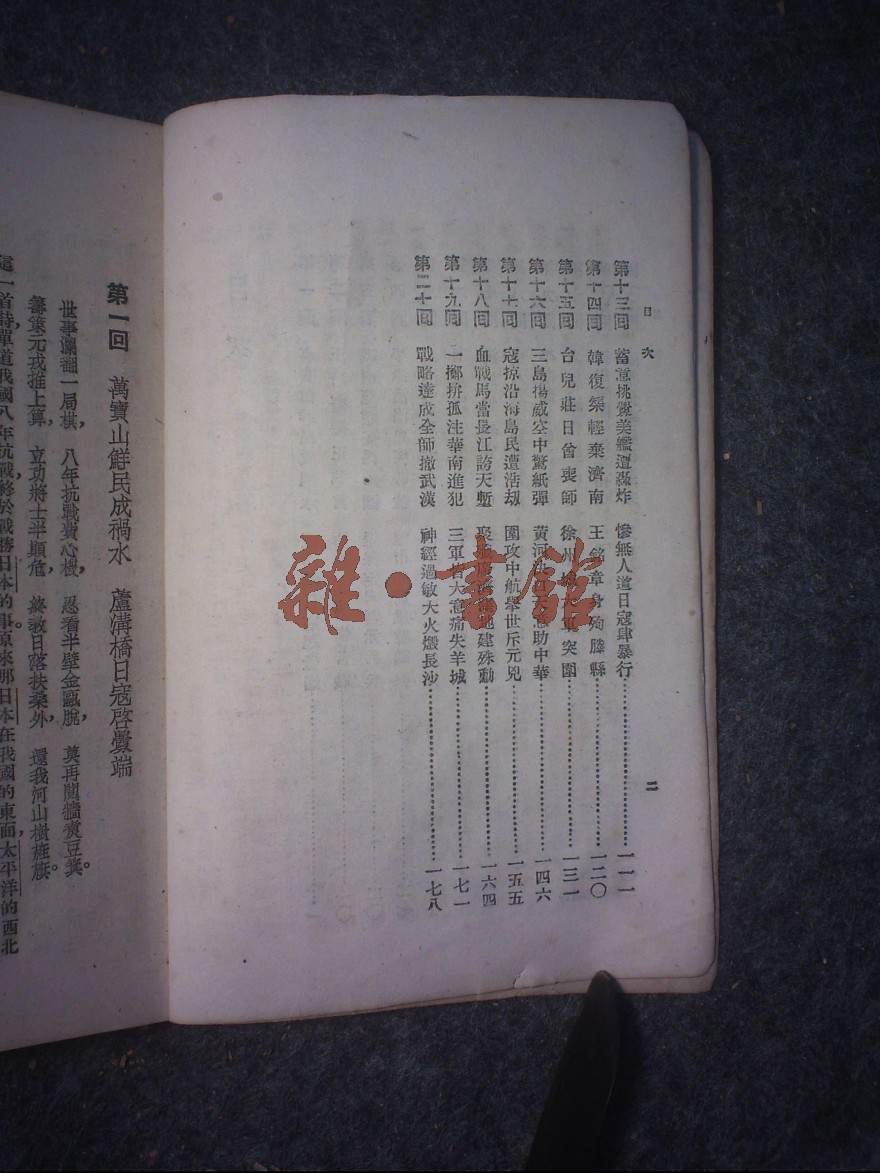 目次
第十三回 蓄意挑釁美艦遭轟炸 慘無人道日寇肆暴行 一一一
第十四回 韓復榘輕棄濟南 王銘章身殉滕縣 一二〇
第十五回 台兒莊日酋喪師 徐州城大軍突圍 一三一
第十六回 三島揚威空中驚紙彈 黃河決口 助中華 一四六
第十七回 寇掠沿海島民遭浩劫 圍攻中航舉世斥元兇 一五五
第十八回 血戰馬當長江誇天塹 聚 建殊勳 一六四
第十九回 一擲拚孤注華南進犯 三軍皆大意痛失羊城 一七一
第二十回 戰略達成全師撤武漢 神經過敏大火燬長沙 一七八
二
雜·書館
第一回 萬寶山鮮民成禍水 蘆溝橋日寇啓釁端
世事瀾翻一局棋,八年抗戰費心機,忍看半壁金甌脫,莫再鬩牆煑豆箕。
籌策元戎推上算,立功將士半顚危,終敎日落扶桑外,還我河山樹旌旗。
這一首詩單道我國八年抗戰,終於戰勝日本的事。原來那日本在我國的東面,太平洋的西北